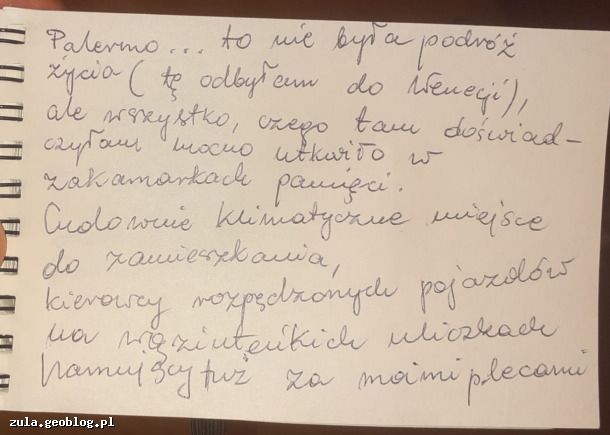 Palermo... to nie była podróż
życia (tę odbyłam do Wenecji),
ale wszystko, czego tam doświad-
czyłam mocno utkwiło w
zakamarkach pamięci.
Cudownie klimatyczne miejsce
do zamieszkania,
kierowcy rozpędzonych pojazdów
na wąziuteńkich uliczkach
hamujący tuż za moimi plecami
zula.geoblog.pl